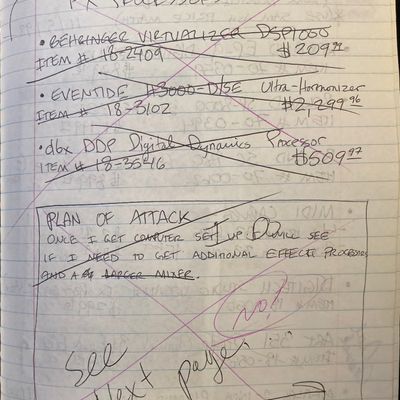 FX PROCESSORS
• BEHRINGER VIRTUALIZER DSP1000
ITEM # 18-2409 $209.99
• EVENTIDE H3000-D/SE Ultra-Harmonizer
ITEM # 18-3102 $2,299.96
• dbx DDP Digital Dynamics Processor
ITEM # 18-3546 $509.97
PLAN OF ATTACK
ONCE I GET COMPUTER SET UP I WILL SEE
IF I NEED TO GET ADDITIONAL EFFECTS PROCESSORS
AND A LARGER MIXER.
NO!!
See
Next page!